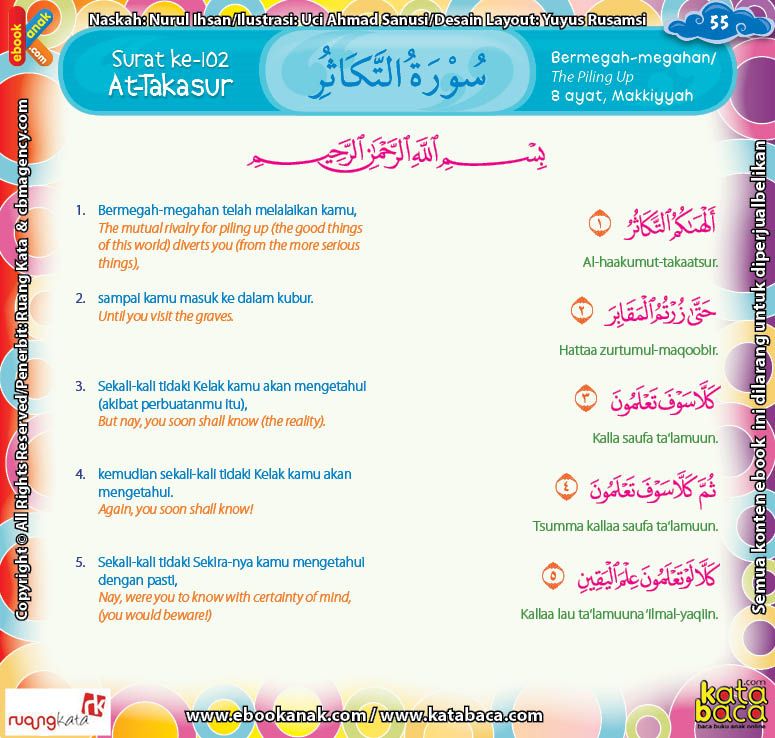 Naskah: Nurul Ihsan/Ilustrasi: Uci Ahmad Sanusi/Desain Layout: Yuyus Rusamsi
55
ebook
anak
.com
Surat ke-102
At-Takasur
سُوْرَةُ التَّكَاثُرِ
Bermegah-megahan/
The Piling Up
8 ayat, Makkiyyah
بِسْمِ ٱللَّهِ ٱلرَّحْمَٰنِ ٱلرَّحِيمِ
1. Bermegah-megahan telah melalaikan kamu,
The mutual rivalry for piling up (the good things
of this world) diverts you (from the more serious
things),
أَلْهَىٰكُمُ ٱلتَّكَاثُرُ ١
Al-haakumut-takaatsur.
2. sampai kamu masuk ke dalam kubur.
Until you visit the graves.
حَتَّىٰ زُرْتُمُ ٱلْمَقَابِرَ ٢
Hattaa zurtumul-maqoobir.
3. Sekali-kali tidak! Kelak kamu akan mengetahui
(akibat perbuatanmu itu),
But nay, you soon shall know (the reality).
كَلَّا سَوْفَ تَعْلَمُونَ ٣
Kalla saufa ta'lamuun.
4. kemudian sekali-kali tidak! Kelak kamu akan
mengetahui.
Again, you soon shall know!
ثُمَّ كَلَّا سَوْفَ تَعْلَمُونَ ٤
Tsumma kallaa saufa ta'lamuun.
5. Sekali-kali tidak! Sekira-nya kamu mengetahui
dengan pasti,
Nay, were you to know with certainty of mind,
(you would beware!)
كَلَّا لَوْ تَعْلَمُونَ عِلْمَ ٱلْيَقِينِ ٥
Kallaa lau ta'lamuuna 'ilmal-yaqiin.
Copyright © All Rights Reserved/Penerbit: Ruang Kata & cbmagency.com
Semua konten ebook ini dilarang untuk diperjualbelikan
ruangkata
rk
www.ebookanak.com / www.katabaca.com
kata
.com
baca
baca buku anak online